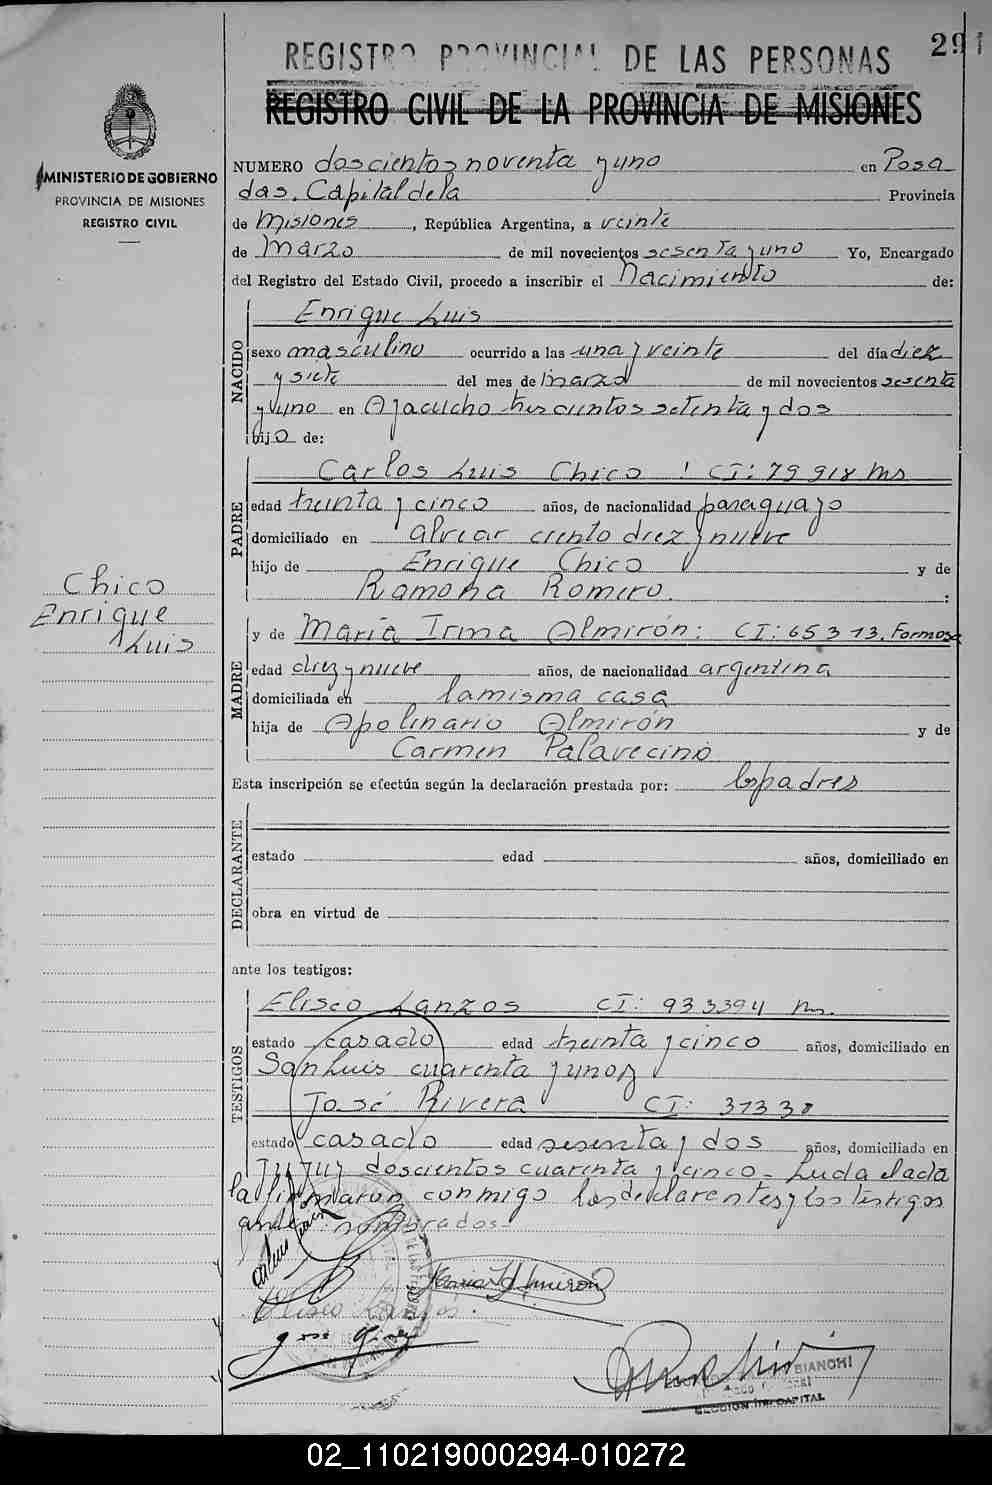 291
REGISTRO PROVINCIAL DE LAS PERSONAS
REGISTRO CIVIL DE LA PROVINCIA DE MISIONES
MINISTERIO DE GOBIERNO
PROVINCIA DE MISIONES
REGISTRO CIVIL
NUMERO doscientos noventa y uno en Posa
das. Capital de la Provincia
de Misiones, República Argentina, a veinte
de Marzo de mil novecientos sesenta y uno Yo, Encargado
del Registro del Estado Civil, procedo a inscribir el Nacimiento de:
NACIDO
Enrique Luis
sexo masculino ocurrido a las una y veinte del día diez
y siete del mes de marzo de mil novecientos sesenta
y uno en Ayacucho trescientos setenta y dos
hijo de:
PADRE
Carlos Luis Chico CI: 79 918 Ms
edad treinta y cinco años, de nacionalidad paraguayo
domiciliado en alvear ciento diez y nueve
hijo de Enrique Chico y de
Ramona Romero. :
Chico
Enrique
Luis
MADRE
y de María Irma Almirón: CI: 65313. Formosa
edad diez y nueve años, de nacionalidad argentina
domiciliada en la misma casa
hija de Apolinario Almirón y de
Carmen Palavecino
Esta inscripción se efectúa según la declaración prestada por: los padres
DECLARANTE
estado edad años, domiciliado en
obra en virtud de
ante los testigos:
TESTIGOS
Eliseo Lanzos CI: 933394 Ms.
estado casado edad treinta y cinco años, domiciliado en
San Luis cuarenta y uno y
José Rivera CI: 31338
estado casado edad sesenta y dos años, domiciliado en
Jujuy doscientos cuarenta y cinco - Leida el acta
la firmaron conmigo los declarantes y los testigos
antes nombrados-
Maria I Almirón
Eliseo Lanzos.
BIANCHI
SECCION CAPITAL
02_110219000294-010272